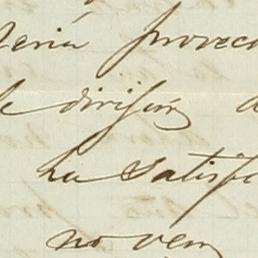 sería provec
de división a
ha satisfe
no ven